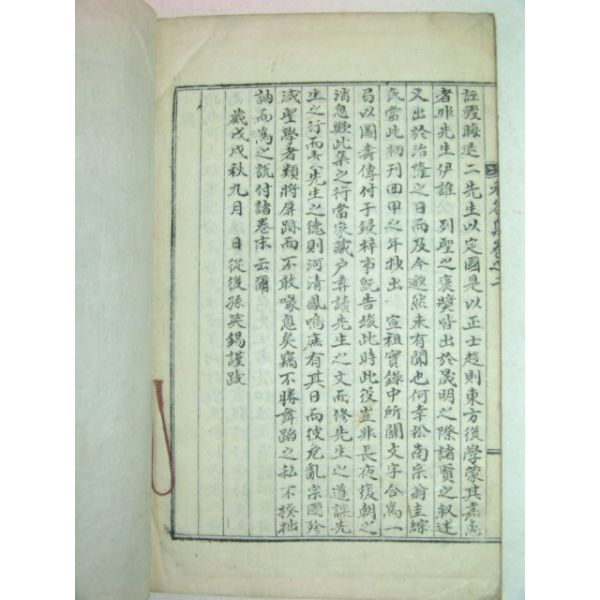 註晦退二先生以定國是以正士趨則東方後學蒙其
者非先生伊誰 列聖之褒奬皆出於晟明之際諸賢之叙述
又出於治隆之日而及今邈然未有聞也何幸松南宗翁圭綜
氏當此初刊回甲之年抄出 宣祖實錄中所關文字合爲一
局以圖壽傳付于鋟梓事旣告竣此時此役豈非長夜復朝之
消息歟此集之行當家藏戶弆讀先生之文而修先生之道誦先
生之行而先生之德則河淸鳳鳴庶有其日而彼危亂宗國殄
滅聖學者類將屛跡而不敢喙息矣竊不勝舞蹈之私不揆拙
訥而爲之說付諸卷末云爾
歲戊戌秋九月 日從後孫英錫謹跋
卷之二